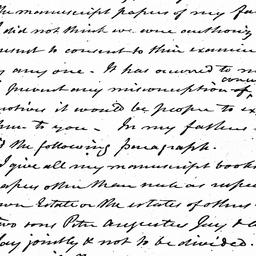 the manuscript papers of my fa
I did not think we were authoriz
ourselves to consent to their examin
by any one - It has occurred to m
prevent any misconception of
motives it would be proper to ex
them to you - In my father's
is the following paragraph.
I give all my manuscript books
papers other than such as respec
own Estate or the estates of others
two sons Peter Augustus Jay &
Jay jointly & not to be divided.